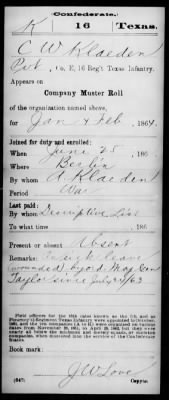 Confederate.
K 16 Texas.
C W Klaeden
Pvt, Co. E, 16 Reg't Texas Infantry.
Appears on
Company Muster Roll
of the organization named above,
for Jan & Feb, 1864.
Joined for duty and enrolled:
When June 25, 186
Where Berlin
By whom A. Klaeden
Period War
Last paid:
By whom Descriptive List
To what time , 186
Present or absent Absent
Remarks: On sick leave
(wounded) by ord Maj Gen
Taylor since July 63
Book mark:
J W Love
(642) Copyist.